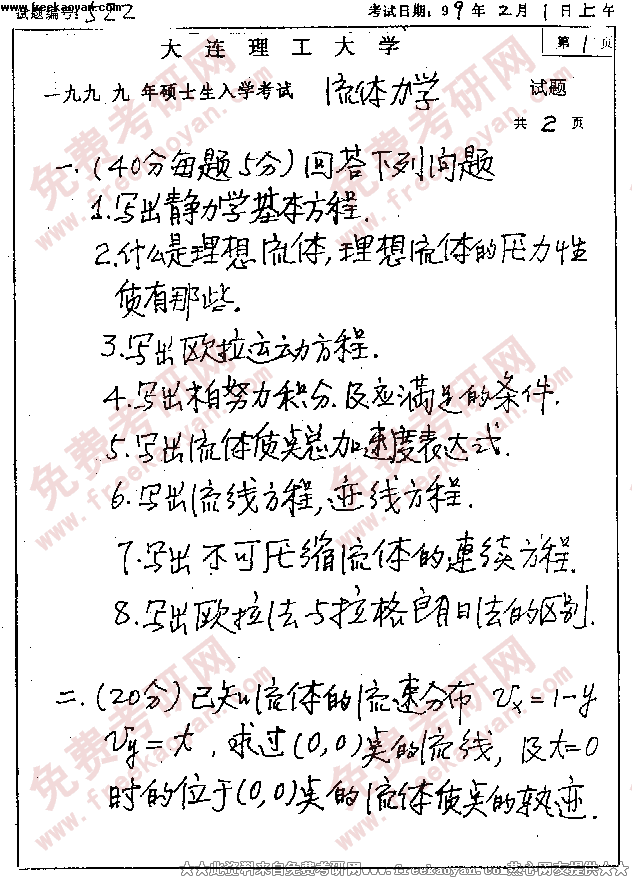 www.freekaoyan.com
试题编号: 522 考试日期: 99年2月1日上午
大连理工大学 第1页
一九九九年硕士生入学考试 流体力学 试题
共2页
一.(40分每题5分)回答下列问题
1.写出静力学基本方程.
2.什么是理想流体,理想流体的压力性
质有那些.
3.写出欧拉运动方程.
4.写出柏努力积分.及应满足的条件.
5.写出流体质点总加速度表达式.
6.写出流线方程,迹线方程.
7.写出不可压缩流体的連续方程.
8.写出欧拉法与拉格郎日法的区别.
二.(20分)已知流体的流速分布 Vx=1-y
Vy=t,求过(0,0)点的流线,及t=0
时的位于(0,0)点的流体质点的轨迹.
免费考研网
www.freekaoyan.com
★★此资料来自免费考研网www.freekaoyan.com热心网友提供★★